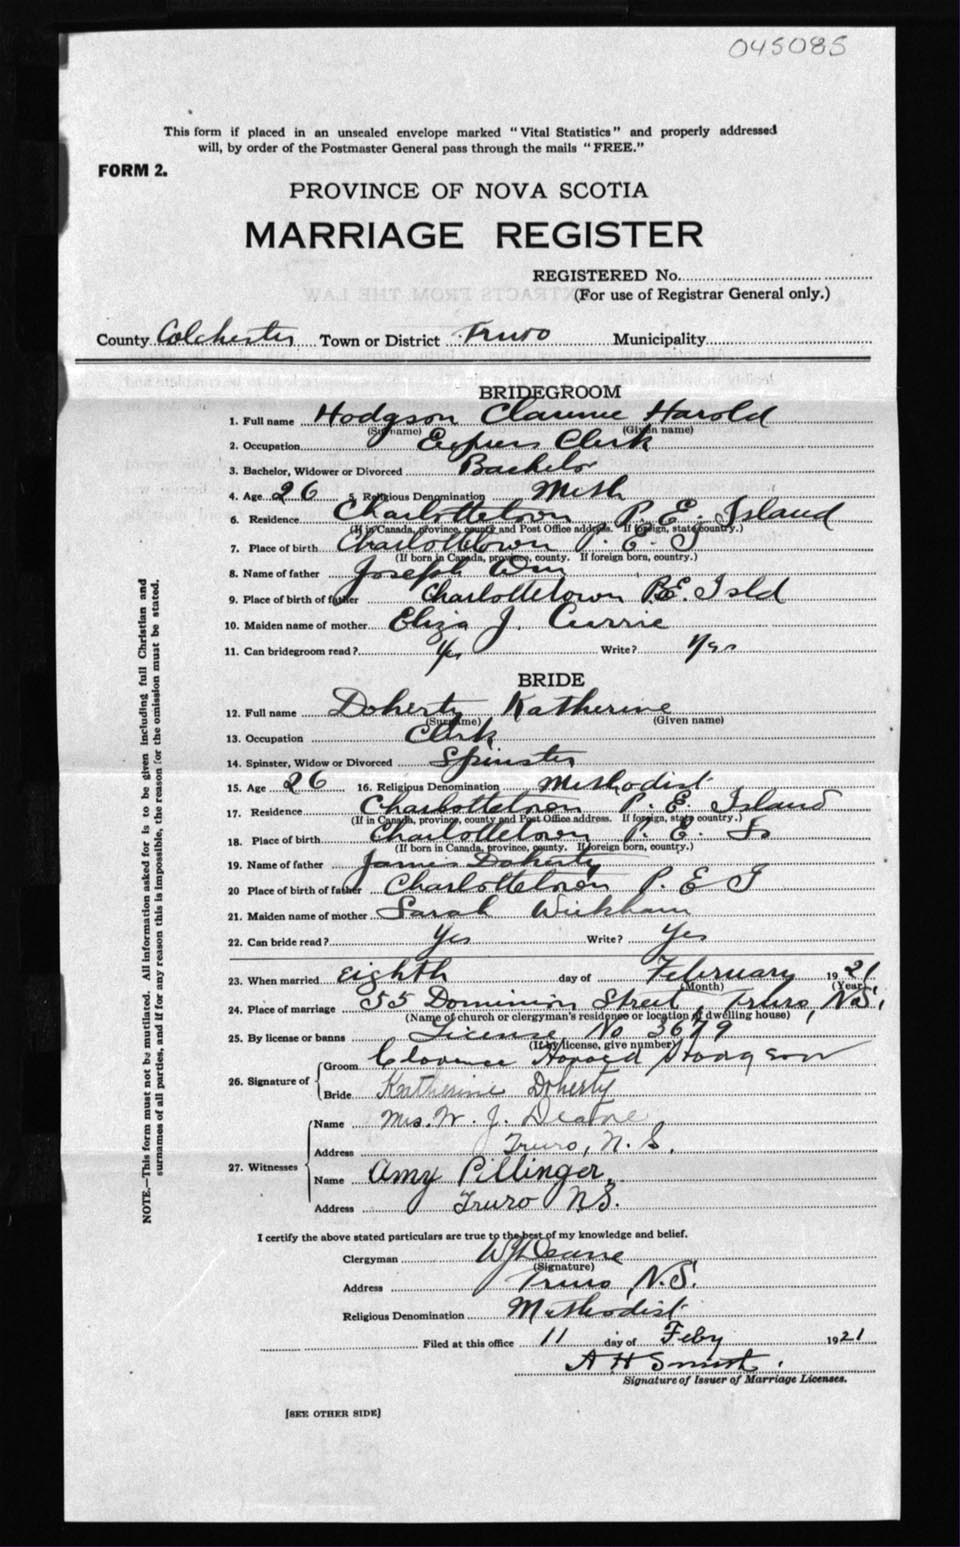 045085
This form if placed in an unsealed envelope marked "Vital Statistics" and properly addressed
will, by order of the Postmaster General pass through the mails "FREE."
FORM 2.
PROVINCE OF NOVA SCOTIA
MARRIAGE REGISTER
REGISTERED No.
(For use of Registrar General only.)
EXTRACTS FROM THE LAW
County Colchester Town or District Truro Municipality
BRIDEGROOM
1. Full name Hodgson Clarence Harold
(Surname) (Given name)
2. Occupation Express Clerk
3. Bachelor, Widower or Divorced Bachelor
4. Age 26 5. Religious Denomination Meth
6. Residence Charlottetown P. E. Island
(If in Canada, province, county and Post Office address. If foreign, state country.)
7. Place of birth Charlottetown P. E. I
(If born in Canada, province, county. If foreign born, country.)
8. Name of father Joseph Wm
9. Place of birth of father Charlottetown P.E. Isld
10. Maiden name of mother Eliza J. Currie
11. Can bridegroom read? Yes Write? Yes
BRIDE
12. Full name Doherty Katherine
(Surname) (Given name)
13. Occupation Clerk
14. Spinster, Widow or Divorced Spinster
15. Age 26 16. Religious Denomination Methodist
17. Residence Charlottetown P. E. Island
(If in Canada, province, county and Post Office address. If foreign, state country.)
18. Place of birth Charlottetown P. E. Is
(If born in Canada, province, county. If foreign born, country.)
19. Name of father James Doherty
20 Place of birth of father Charlottetown P. E I
21. Maiden name of mother Sarah Wickham
22. Can bride read? Yes Write? Yes
23. When married eighth day of February 1921
(Month) (Year)
24. Place of marriage 55 Dominion Street, Truro, N.S.
(Name of church or clergyman's residence or location of dwelling house)
25. By license or banns License No 3679
(If by license, give number)
26. Signature of
Groom Clarence Harold Hodgson
Bride Katherine Doherty
27. Witnesses
Name Mrs. W. J. Deane
Address Truro, N. S.
Name Amy Pillinger
Address Truro N.S.
I certify the above stated particulars are true to the best of my knowledge and belief.
Clergyman WJ Deane
(Signature)
Address Truro N.S.
Religious Denomination Methodist
Filed at this office 11 day of Feby 1921
A H Smith
Signature of Issuer of Marriage Licenses.
[SEE OTHER SIDE]
NOTE.—This form must not be mutilated. All information asked for is to be given including full Christian and
surnames of all parties, and if for any reason this is impossible, the reason for the omission must be stated.